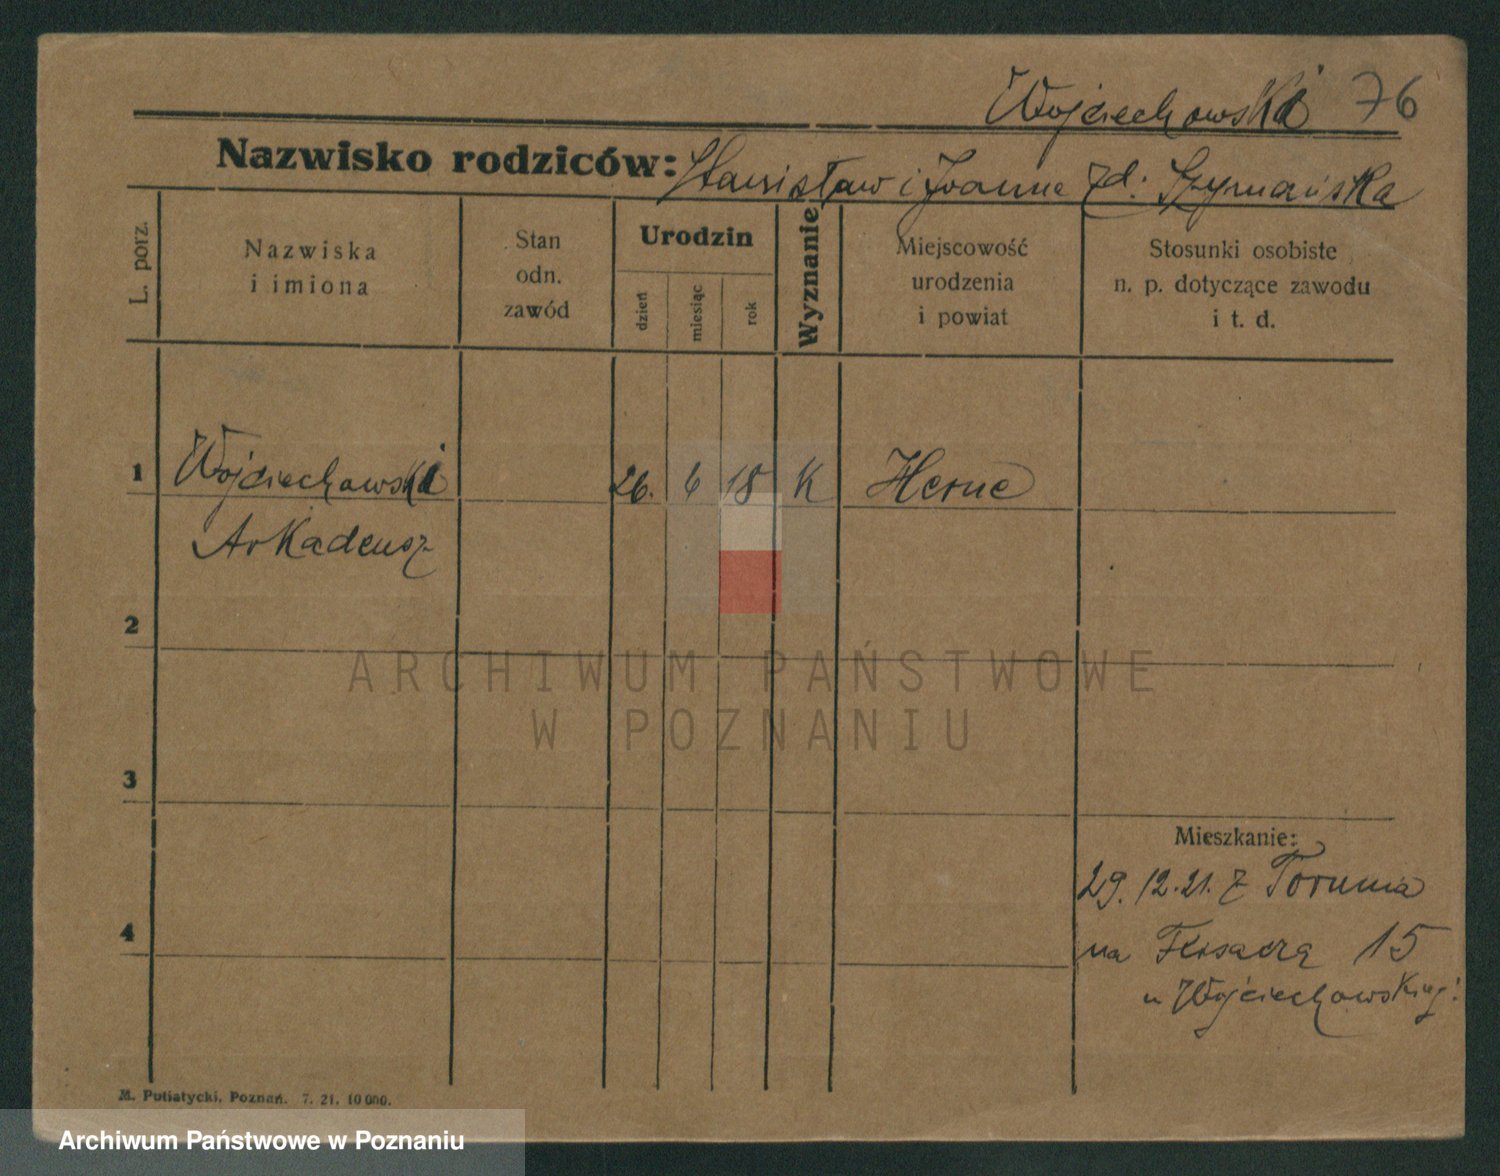 Wojciechowski 76
Nazwisko rodziców: Stanisław i Joanna zd: Szymańska
L. porz.
Nazwiska
i imiona
Stan
odn.
zawód
Urodzin
dzień
miesiąc
rok
Wyznanie
Miejscowość
urodzenia
i powiat
Stosunki osobiste
n. p. dotyczące zawodu
i t. d.
1 Wojciechowski 26. 6 18 K Herne
Arkadeusz
2
ARCHIWUM PAŃSTWOWE
W POZNANIU
3
Mieszkanie:
29. 12. 21. z Torunia
4
na 15
u Wojciechowskiej
M. Putiatycki, Poznań. 7. 21. 10 000.
Archiwum Państwowe w Poznaniu